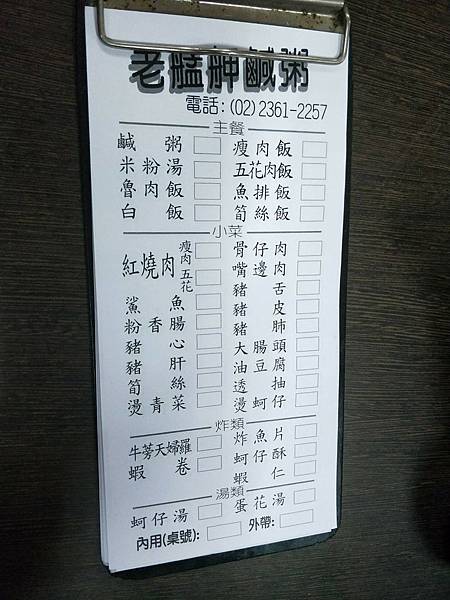 老艋舺鹹粥
電話:(02)2361-2257
主餐
鹹粥 瘦肉飯
米粉湯 五花肉飯
魯肉飯 魚排飯
白飯 筍絲飯
小菜
紅燒肉 瘦肉 骨仔肉
五花 嘴邊肉
豬舌
鯊魚 豬皮
粉香腸 豬肺
豬心 大腸頭
豬肝 油豆腐
筍絲 透抽
燙青菜 燙蚵仔
炸類
牛蒡天婦羅 炸魚片
蝦卷 蚵仔酥
蝦仁
湯類
蚵仔湯 蛋花湯
內用(桌號): 外帶: